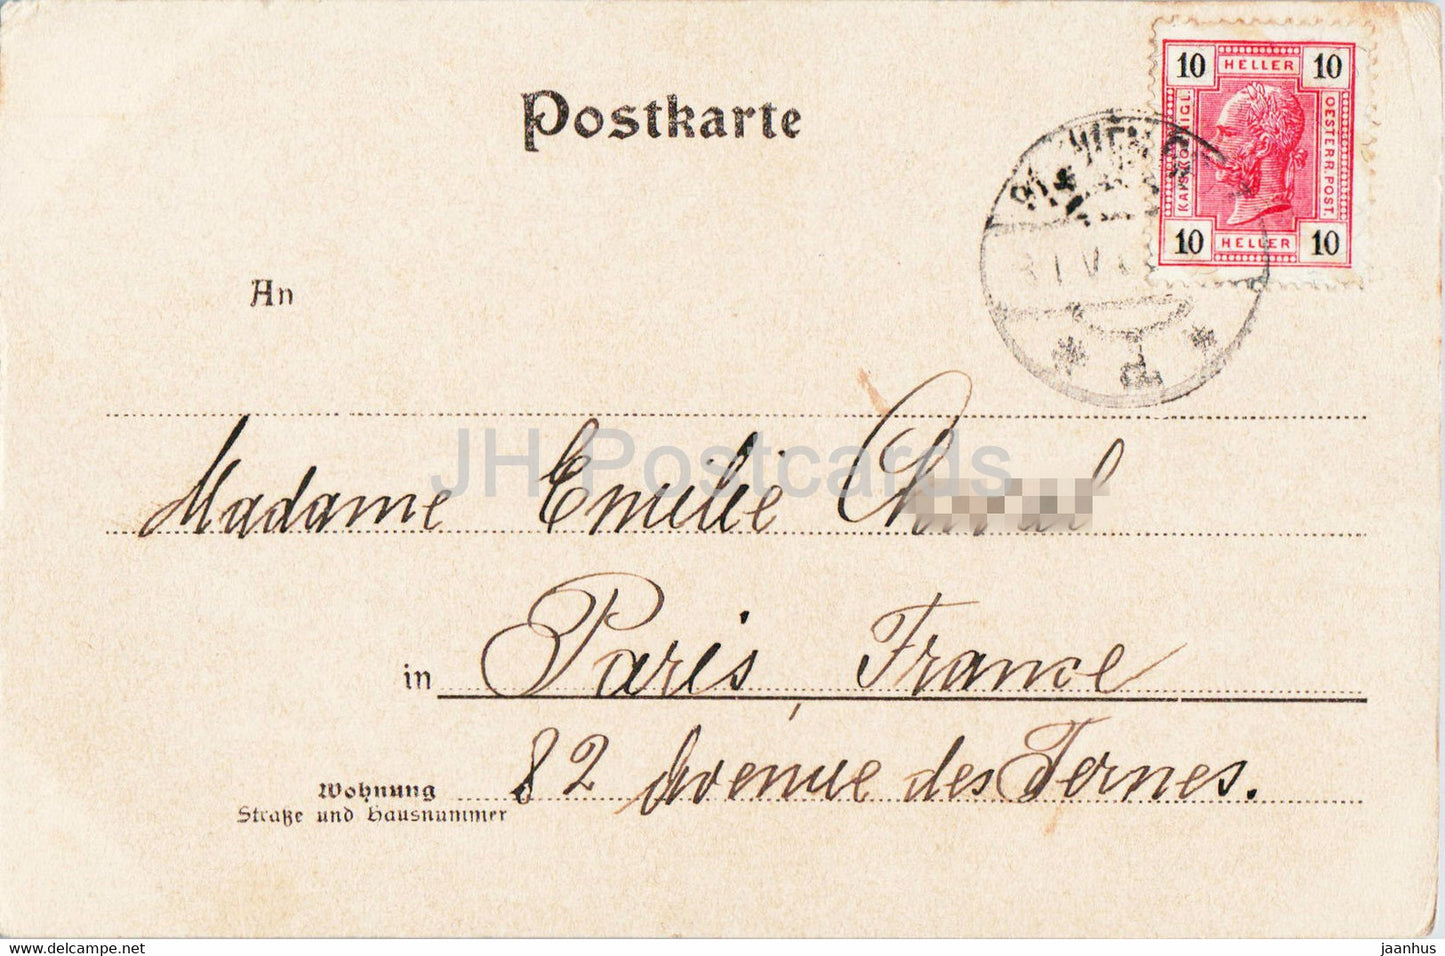 Postkarte
10 HELLER 10
KAIS. KÖNIGL.
OESTERR. POST.
10 HELLER 10
WIEN
An
Madame Emilie
JH Postcards
in Paris, France
82 Avenue des Ternes.
Wohnung
Straße und Hausnummer
www.delcampe.net
jaanhus